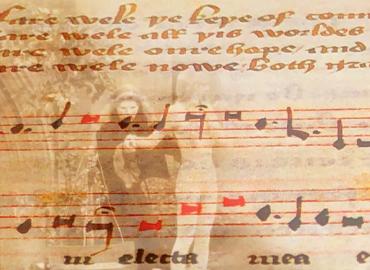 fare wele ye keye of com
are wele all yis worldes
are wele owre hope and
re wele nowe both
m electa mea e